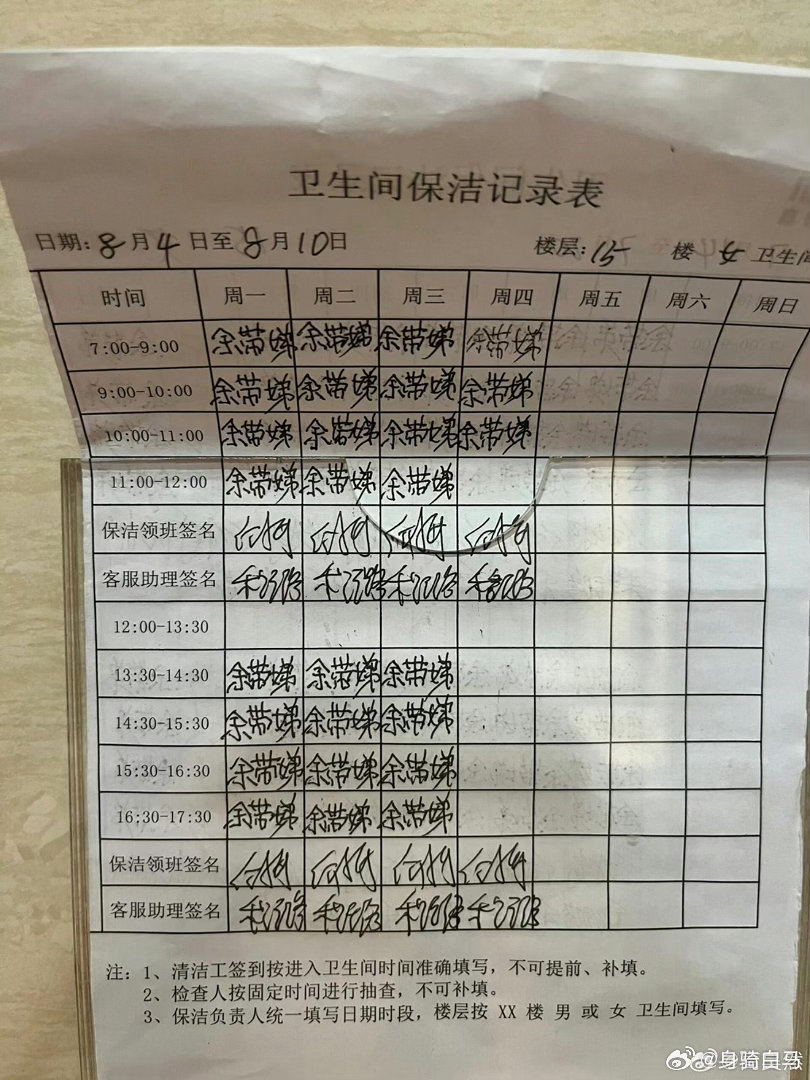 卫生间保洁记录表
日期: 8 月 4 日至 8 月 10 日 楼层: 15 楼 女 卫生间
时间 周一 周二 周三 周四 周五 周六 周日
7:00-9:00 余带娣 余带娣 余带娣 余带娣
9:00-10:00 余带娣 余带娣 余带娣 余带娣
10:00-11:00 余带娣 余带娣 余带娣 余带娣
11:00-12:00 余带娣 余带娣 余带娣
保洁领班签名
客服助理签名
12:00-13:30
13:30-14:30 余带娣 余带娣 余带娣
14:30-15:30 余带娣 余带娣 余带娣
15:30-16:30 余带娣 余带娣 余带娣
16:30-17:30 余带娣 余带娣 余带娣
保洁领班签名
客服助理签名
注: 1、清洁工签到按进入卫生间时间准确填写，不可提前、补填。
2、检查人按固定时间进行抽查，不可补填。
3、保洁负责人统一填写日期时段，楼层按 XX 楼 男 或 女 卫生间填写。
@身骑白烈